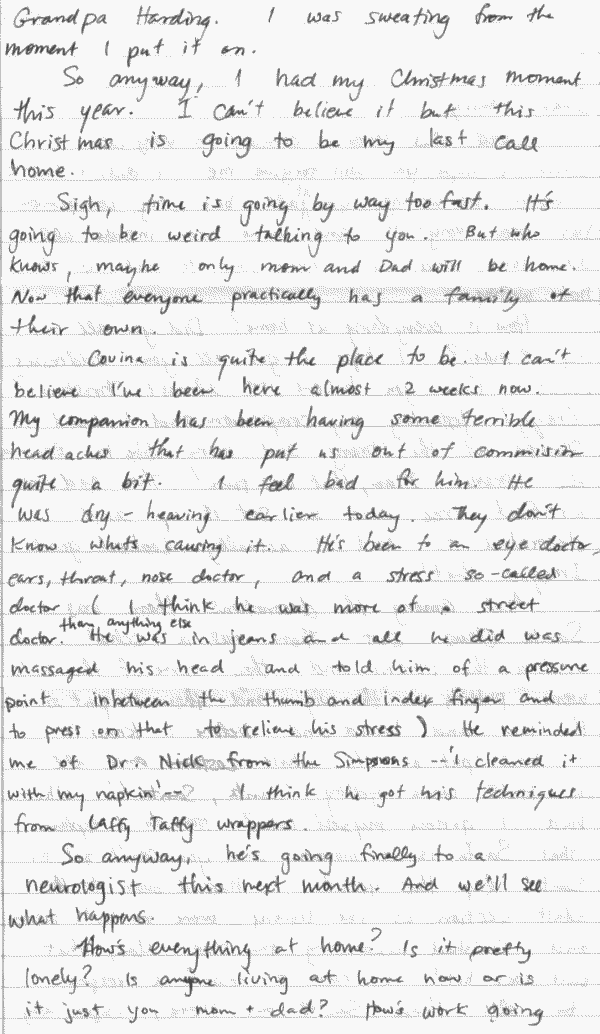 Grandpa Harding. I was sweating from the
moment I put it on.
So anyway, I had my Christmas moment
this year. I can't believe it but this
Christmas is going to be my last call
home.
Sigh, time is going by way too fast. It's
going to be weird talking to you. But who
knows, maybe only mom and Dad will be home.
Now that everyone practically has a family of
their own.
Covina is quite the place to be. I can't
believe I've been here almost 2 weeks now.
My companion has been having some terrible
headaches that has put us out of commision
quite a bit. I feel bad for him He
was dry-heaving earlier today. They don't
know whats causing it. He's been to an eye doctor,
ears, throat, nose doctor, and a stress so-called
doctor ( I think he was more of a street
than anything else
doctor. He was in jeans and all he did was
massaged his head and told him of a pressure
point inbetween the thumb and index finger and
to press on that to relieve his stress ) He reminded
me of Dr. Nick from the Simpsons --'I cleaned it
with my napkin'-- I think he got his techniques
from Laffy Taffy wrappers.
So anyway, he's going finally to a
neurologist this next month. And we'll see
what happens.
How's everything at home? Is it pretty
lonely? Is anyone living at home now or is
it just you mom + dad? How's work going